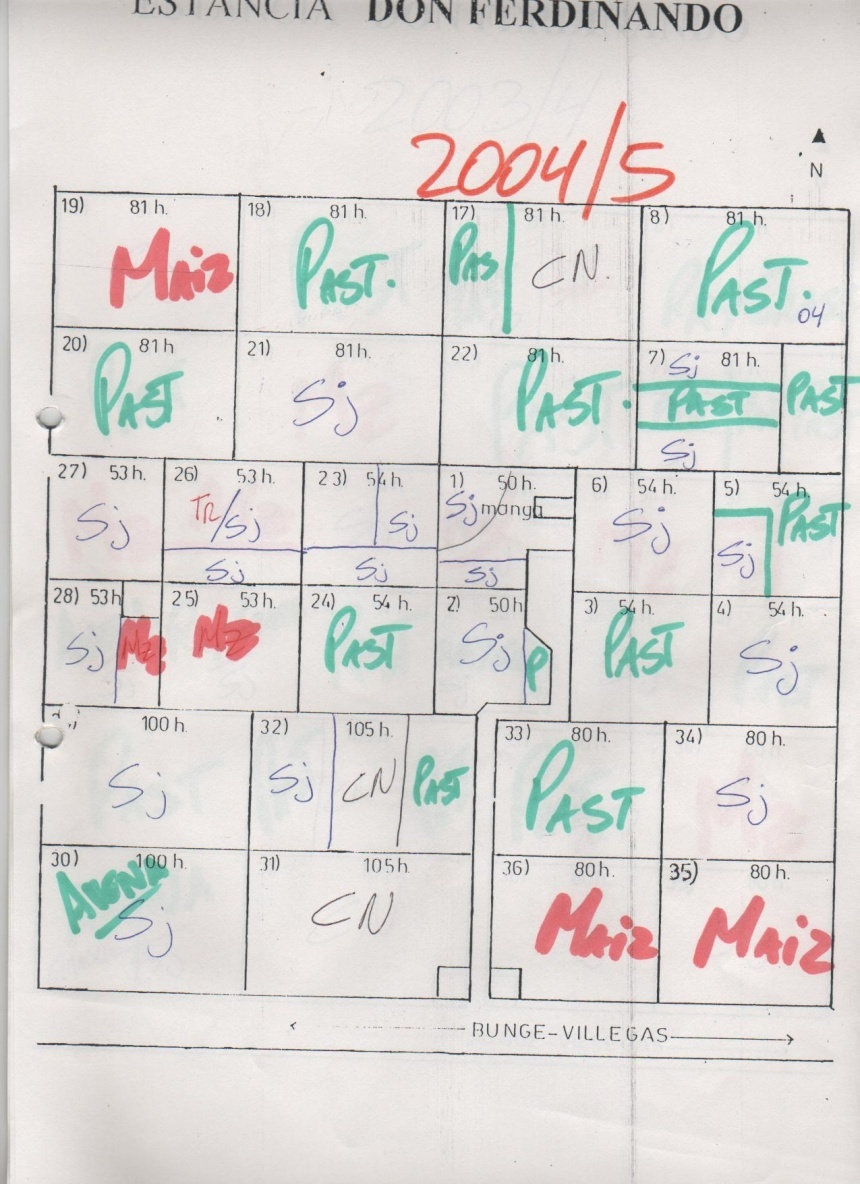 ESTANCIA DON FERDINANDO
2003/4
2004/5
N
19) 81 h.
Maiz
18) 81 h.
PAST.
17) 81 h.
PAS
CN.
8) 81 h.
PAST.
04
20) 81 h
PAST
21) 81 h.
Sj
22) 81 h.
PAST.
7) 81 h.
Sj
PAST
Sj
PAST
27) 53 h.
Sj
26) 53 h.
TR/Sj
Sj
23) 54 h.
Sj
Sj
1) 50 h.
Sj manga
Sj
6) 54 h.
Sj
5) 54 h.
PAST
Sj
28) 53 h
Sj
Mz
25) 53 h.
Mz
24) 54 h.
PAST
2) 50 h.
Sj
P
3) 54 h.
PAST
4) 54 h.
Sj
100 h.
Sj
32) 105 h.
Sj
CN
PAST
33) 80 h.
PAST
34) 80 h.
Sj
30) 100 h.
AVENA
Sj
31) 105 h.
CN
36) 80 h.
MAiz
35) 80 h.
MAiz
BUNGE-VILLEGAS